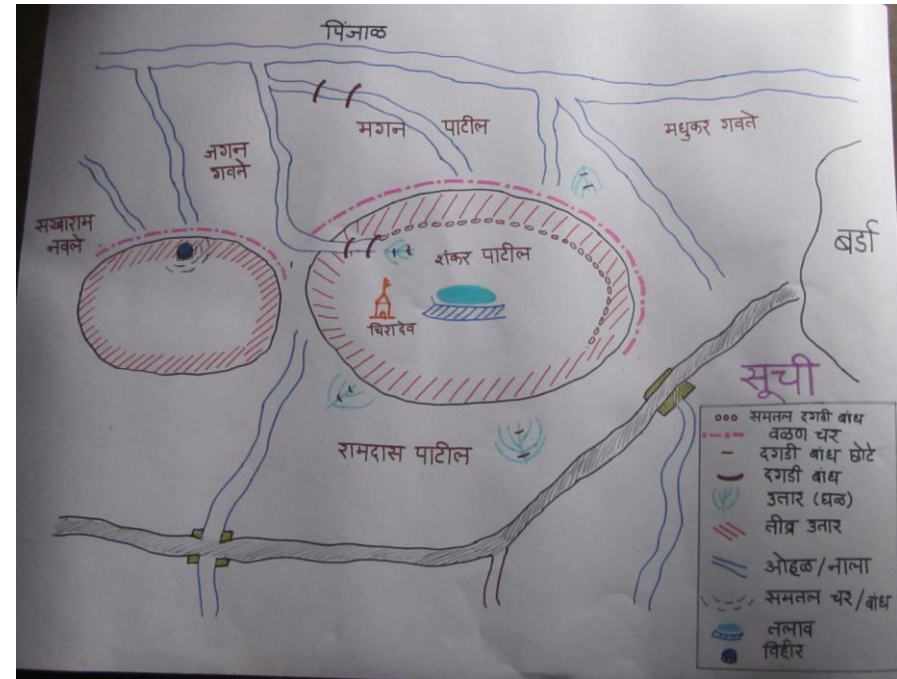 पिंजाळ
मगन पाटील
मधुकर गवते
जगन
गवने
सखाराम
नवले
शंकर पाटील
बर्डा
चिरादेव
रामदास पाटील
सूची
समतल दगडी बांध
वळण चर
दगडी बांध छोटे
दगडी बांध
उतार (घळ)
तीव्र उतार
ओहळ/नाला
समतल चर/बांध
तलाव
विहीर